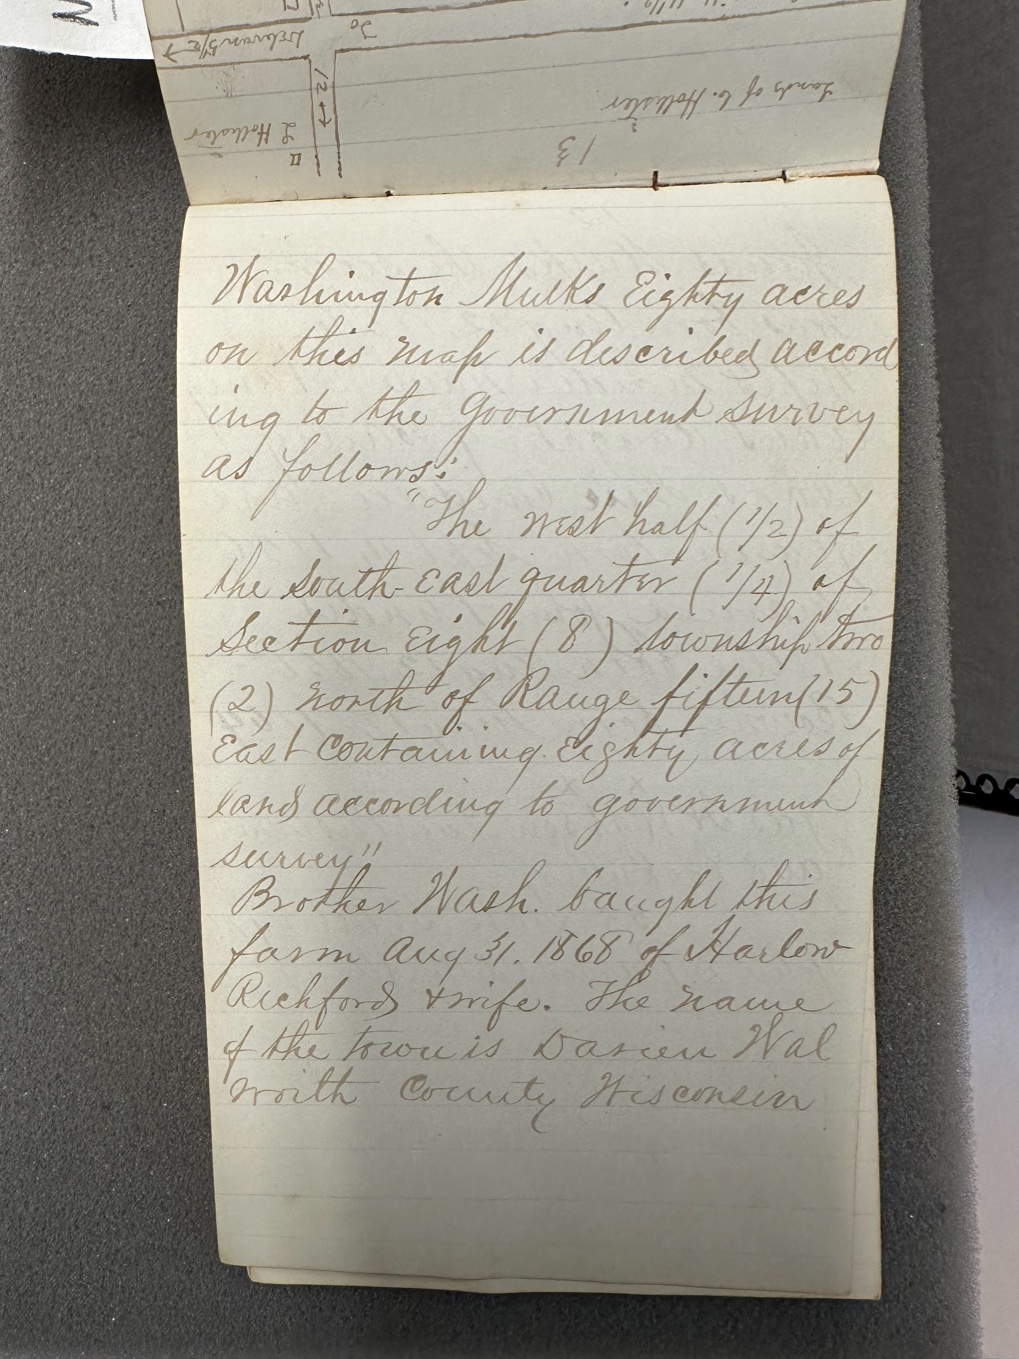 Delevan 5/2 →
To
12 ↔
L Hollister
Lands of C. Hollister
13
Washington Mulks Eighty acres
on this map is described accord
ing to the Government survey
as follows:
"The west half (1/2) of
the South-East quarter (1/4) of
Section Eight (8) township two
(2) north of Range fifteen (15)
East Containing Eighty acres of
land according to government
survey"
Brother Wash. baught this
farm Aug 31. 1868 of Harlow
Richford & wife. The name
of the town is Darien Wal
worth County Wisconsin